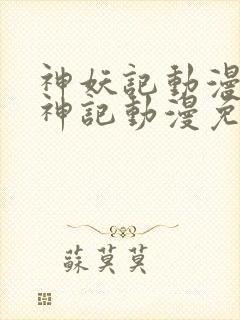 神妖記動漫
神記動漫免
蘇莫莫